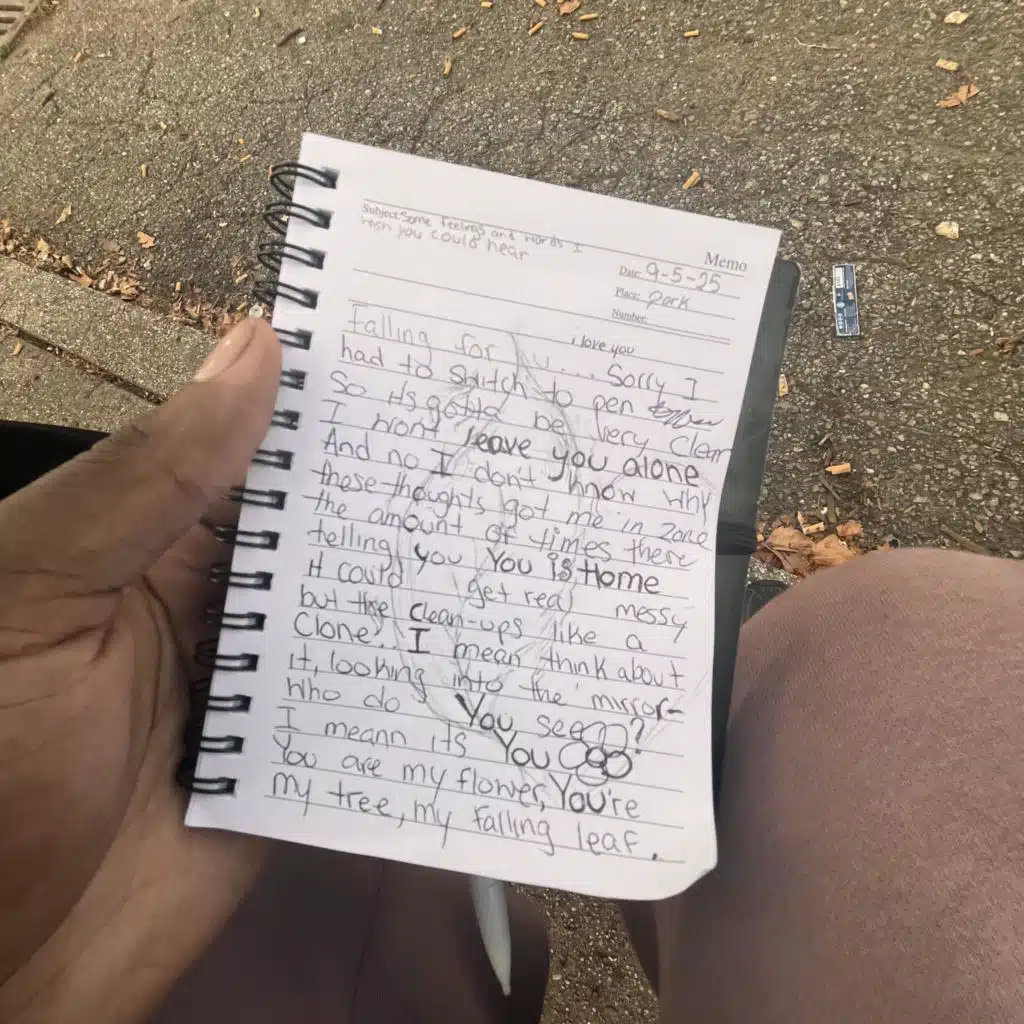 Subject: Some feelings and words I
wish you could hear
Memo
Date: 9-5-25
Place: park
Number:
i love you
Falling for .... Sorry I
had to Stitch to pen
So its gotta be very Clear
I wont leave you alone
And no I don't know why
these thoughts got me in zone
the amount of times there
telling you You is Home
It could get real messy
but the Clean-ups like a
Clone... I mean think about
it, looking into the mirror-
Who do You see?
I meann its You
You are my flower, You're
My tree, my falling leaf.